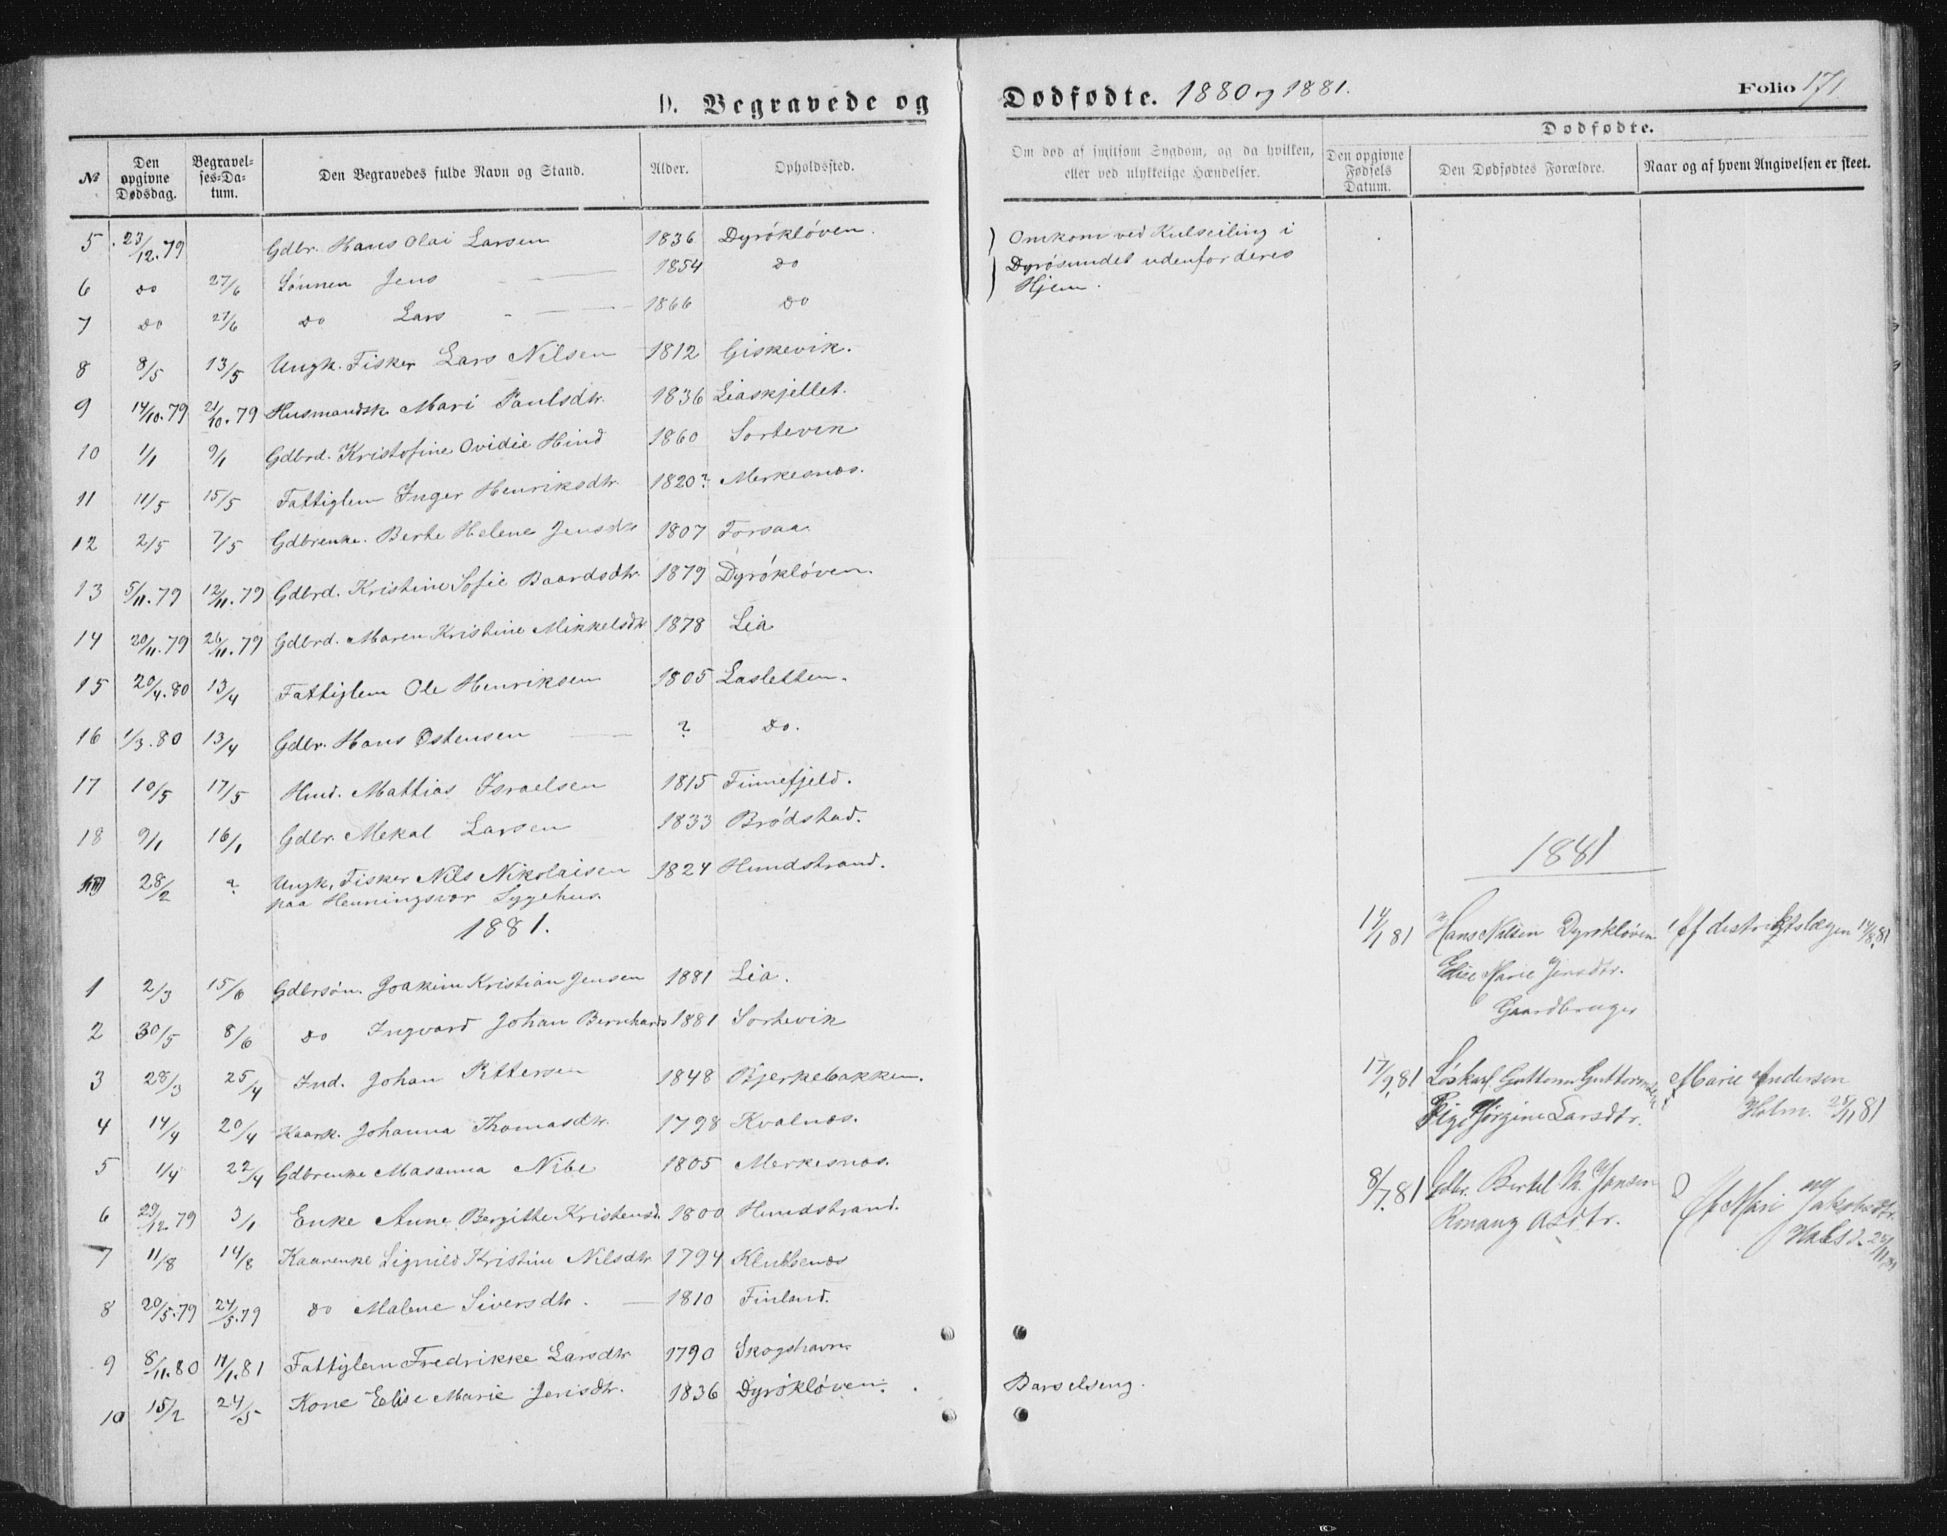 D. Begravede og Dødfødte. 1880 og 1881. Folio 171
Dødfødte.
№ Den opgivne Dødsdag. Begravelses-Datum. Den Begravedes fulde Navn og Stand. Alder. Opholdssted. Om død af smitsom Sygdom, og da hvilken, eller ved ulykkelige Hændelser. Den opgivne Fødsels Datum. Den Dødfødtes Forældre. Naar og af hvem Angivelsen er skeet.
5 23/12.79 Gdbr. Hans Olai Larsen 1836 Dyrökløven. Omkom ved Kulseiling i
6 do 27/6 Sønnen Jens 1854 do Dyrösundet udenfor deres
7 do 27/6 do Lars 1866 do Hjem.
8 8/5 13/5 Ungk. Fisker Lars Nilsen 1812 Giskevik.
9 14/10.79 21/10.79 Husmandsk. Mari Paulsdtr. 1836 Liaskjellet.
10 1/1 9/1 Gdbrd. Kristofine Ovidie Hind 1860 Sortevik
11 11/5 15/5 Fattiglem Inger Henriksdtr. 1820? Merkesnæs.
12 2/5 7/5 Gdbrenke. Berte Helene Jensdtr 1807 Forsaa.
13 5/11.79 12/11.79 Gdbrd. Kristine Sofie Baardsdtr. 1879 Dyrökløven.
14 20/11.79 26/11.79 Gdbrd. Maren Kristine Mikkelsdtr 1878 Lia
15 20/4.80 13/4 Fattiglem Ole Henriksen 1805 Lasletten.
16 1/3.80 13/4 Gdbr. Hans Ostensen ? do.
17 10/5 17/5 Hmd. Mattias Israelsen 1815 Finnefjeld.
18 9/1 16/1 Gdbr. Mekal Larsen 1833 Brödstad.
28/2 ? Ungk. Fisker Nils Nikolaisen 1824 Hundstrand.
paa Henningsvær Sygehus.
1881.
1 2/3 15/6 Gdbrsøn. Joakim Kristian Jensen 1881 Lia.
2 30/5 8/6 do Ingvard Johan Bernhard 1881 Sortevik
3 28/3 25/4 Ind. Johan Pettersen 1848 Bjerkebakken.
4 14/4 20/4 Kaark. Johanna Thomasdtr. 1798 Kvalnæs.
5 1/4 22/4 Gdbrenke Masanna Nibe 1805 Merkesnæs.
6 29/12.79 3/1 Enke Anne Bergitte Kristensd. 1800 Hundstrand.
7 11/8 14/8 Kaarenke Signild Kristine Nilsdtr 1794 Klubbenæs
8 20/5.79 24/5.79 do Malene Siversdtr. 1810 Finland.
9 8/11.80 11/1.81 Fattiglem Fredrikke Larsdtr 1790 Skogshavn
10 15/2 24/5 Kone Elise Marie Jensdtr. 1836 Dyrökløven. Barselseng.
1881
14/1 81 Hans Nilsen Dyrökløven Af distriktslægen 14/8.81
Elise Marie Jensdtr.
Gaardbruger
17/9.81 Løskarl Guttorm Marie Andersen
Pige Jørgine Larsdtr. Holm. 25/11 81
8/7.81 Gdbr. Bertel M. Jensen Af Mari Jakobsdtr.